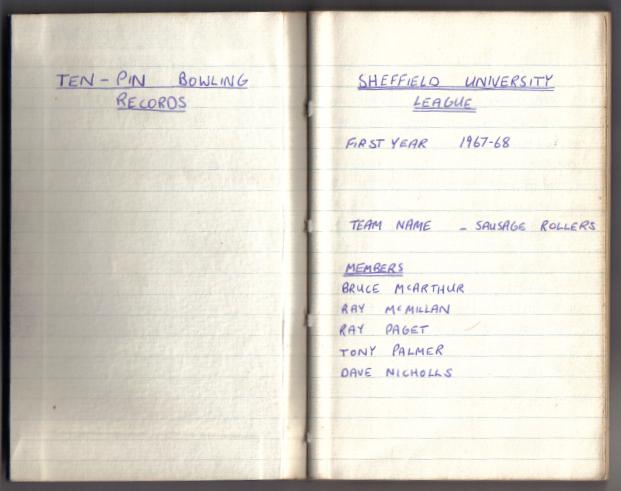 TEN-PIN BOWLING
RECORDS
SHEFFIELD UNIVERSITY
LEAGUE
FIRST YEAR 1967-68
TEAM NAME - SAUSAGE ROLLERS
MEMBERS
BRUCE McARTHUR
RAY McMILLAN
RAY PAGET
TONY PALMER
DAVE NICHOLLS